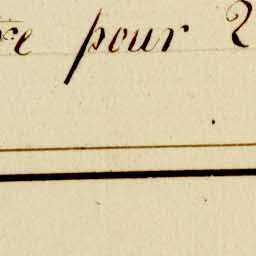 re pour 2